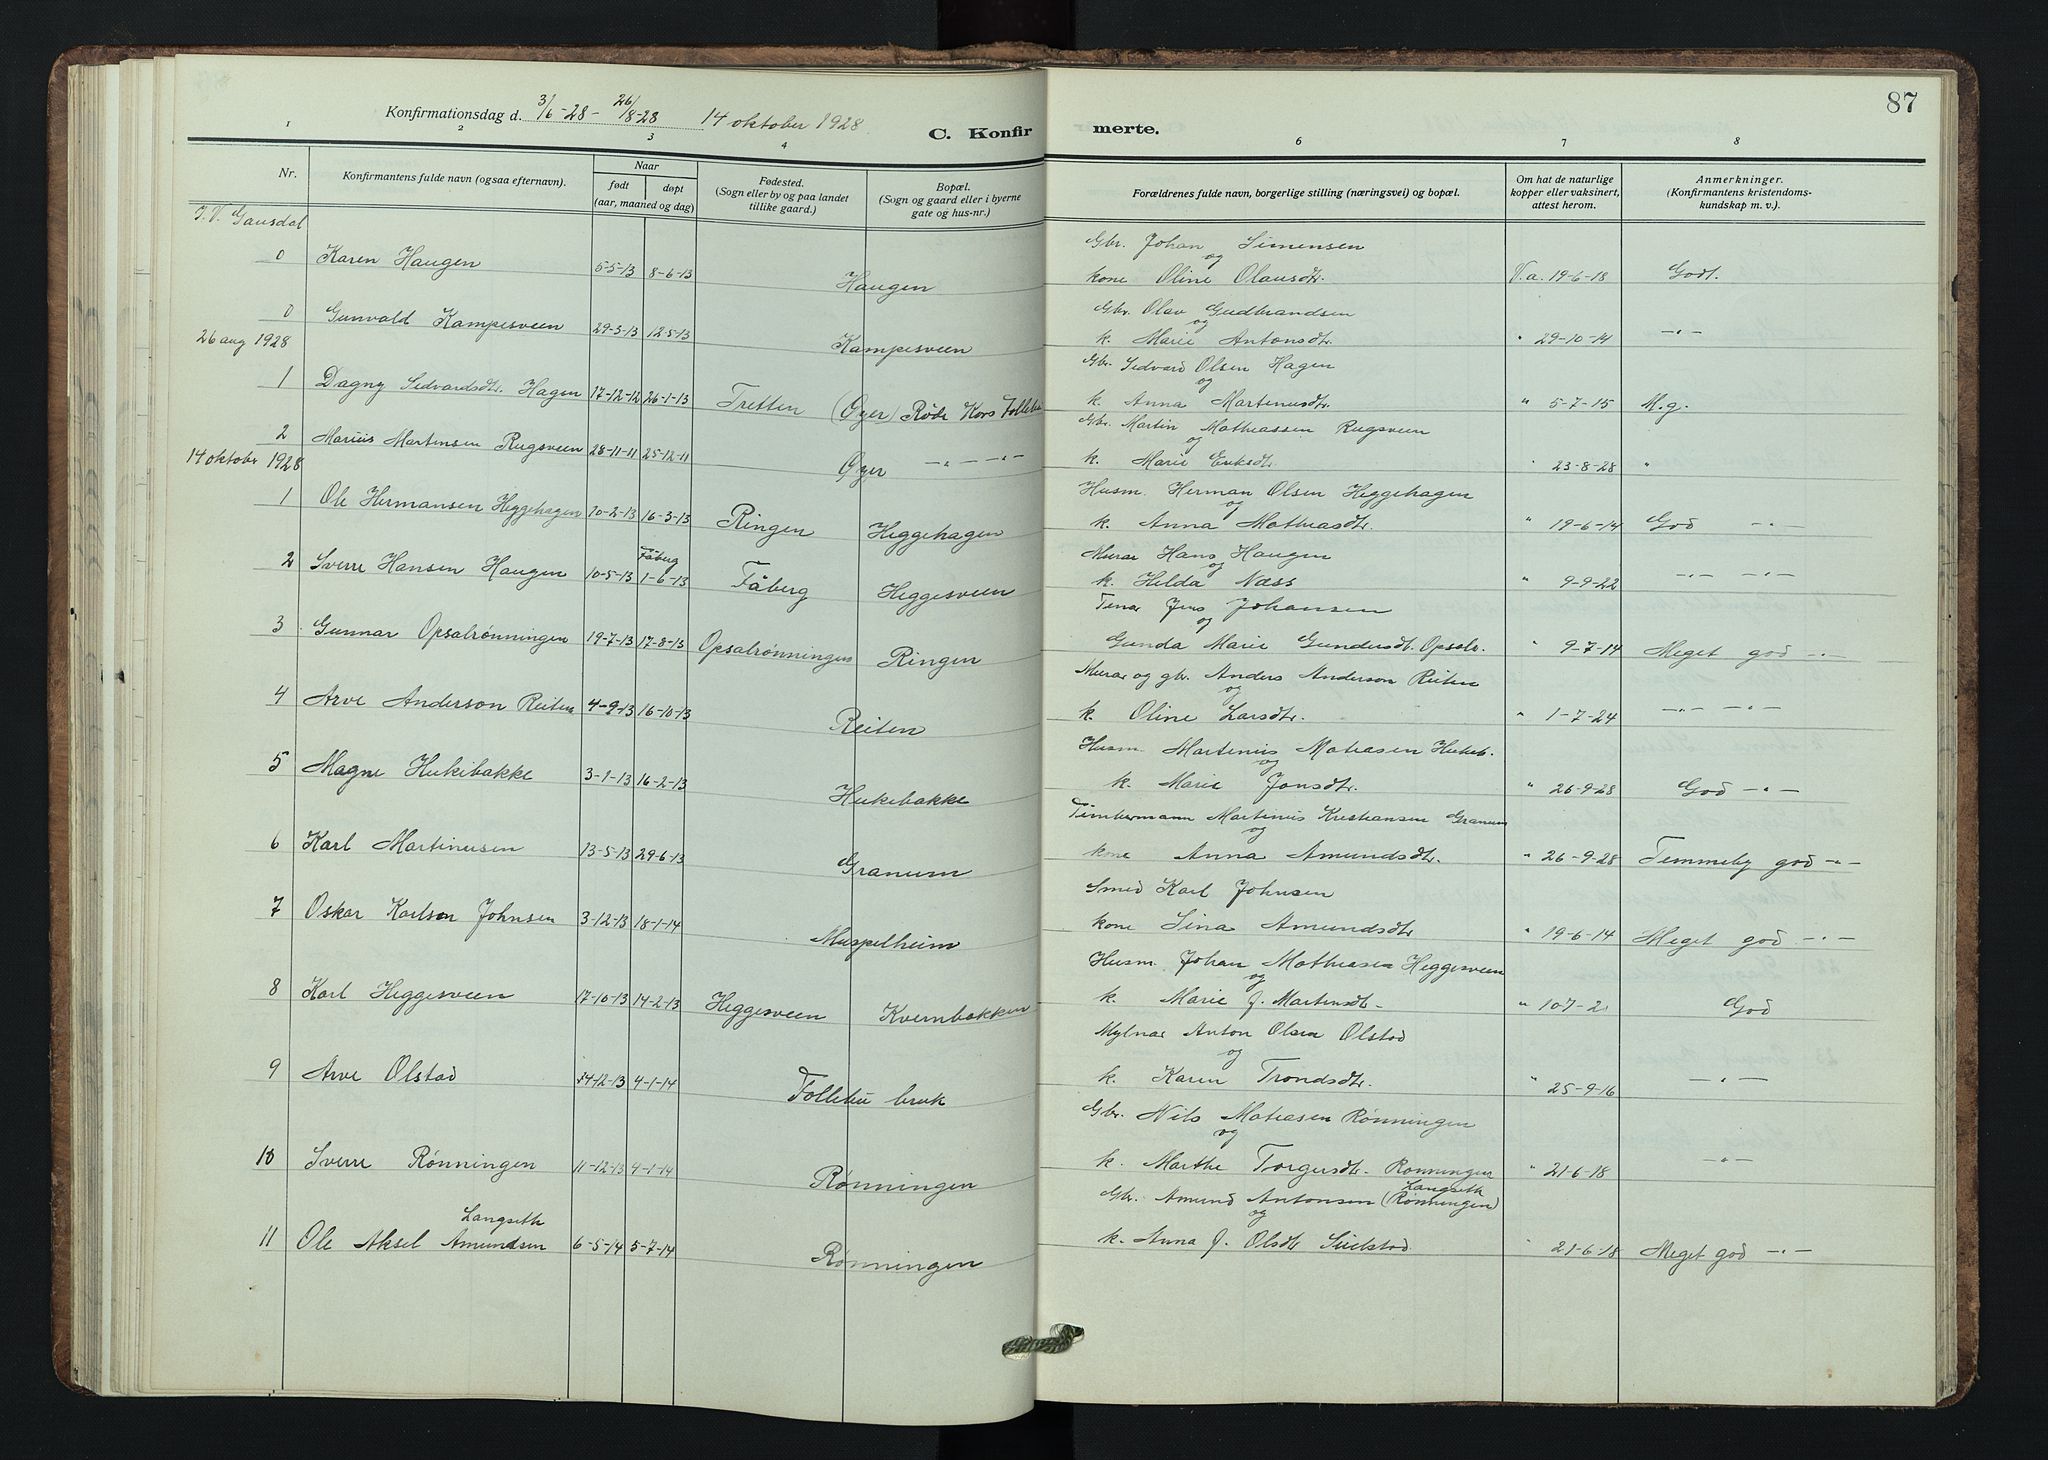 Konfirmationsdag d. 3/6-28 - 26/8-28 14 oktober 1928
C. Konfir merte. 87
1 2 3 4 6 7 8
Nr. Konfirmantens fulde navn (ogsaa efternavn). Naar født døpt (aar, maaned og dag) Fødested. (Sogn eller by og paa landet tillike gaard.) Bopæl. (Sogn og gaard eller i byerne gate og hus-nr.) Forældrenes fulde navn, borgerlige stilling (næringsvei) og bopæl. Om hat de naturlige kopper eller vaksinert, attest herom. Anmerkninger. (Konfirmantens kristendoms- kundskap m. v.).
V. Gausdal
Gbr. Johan Simensen
og
0 Karen Haugen 5-5-13 8-6-13 Haugen kone Oline Olausdtr. V.a. 19-6-18 Godt.
Gbr. Olav Gudbrandsen
og
0 Gunvald Kampesveen 29-3-13 12-5-13 Kampesveen k. Marie Antonsdtr. " 29-10-14 -"-
26 aug 1928
Gbr. Sedvard Olsen Hagen
og
1 Dagny Sedvardsdtr. Hagen 17-12-12 26-1-13 Tretten (Øyer) Røde Kors Follebu k. Anna Martinusdtr. " 5-7-15 M.g.
Gbr. Martin Mathiassen Rugsveen
og
2 Marius Martinsen Rugsveen 28-11-11 25-12-11 Øyer -"- -"- k. Marie Eriksdtr. " 23-8-28 "
14 oktober 1928
Husm. Herman Olsen Heggehagen
og
1 Ole Hermansen Heggehagen 10-2-13 16-3-13 Ringen Heggehagen k. Anna Mathiasdtr. " 19-6-14 God -"-
Murar Hans Haugen
og
2 Sverre Hansen Haugen 10-5-13 Fåberg 1-6-13 Fåberg Heggesveen k. Helda Næss " 9-9-22 -"- -"-
Tenar Jens Johansen
og
3 Gunnar Opsalrønningen 19-7-13 17-8-13 Opsalrønningen Ringen Gunda Marie Gundersdt. Opsalr. " 9-7-14 Meget god -"-
Murar og gbr. Anders Anderson Reiten
og
4 Arve Anderson Reiten 4-9-13 16-10-13 Reiten k. Oline Larsdtr. " 1-7-24 -"- -"-
Husm. Martinus Matiasen Hukeb.
og
5 Magne Hukibakke 3-1-13 16-2-13 Hukibakke k. Marie Jonsdtr. " 26-9-28 God -"-
Timbermann Martinius Kristiansen Granum
og
6 Karl Martinusen 13-5-13 29-6-13 Granum kone Anna Amundsdtr. " 26-9-28 Temmeleg god -"-
Smed Karl Johnsen
7 Oskar Karlsen Johnsen 3-12-13 18-1-14 Muspelheim kone Sina Amundsdtr " 19-6-14 Meget god -"-
Husm. Johan Mathiasen Heggesveen
og
8 Karl Heggesveen 17-10-13 14-2-13 Heggesveen Kvernbakken k. Marie J. Martinsdtr. " 10-7-2 God
Mylnar Anton Olsen Olstad
og
9 Arve Olstad 14-12-13 4-1-14 Follebu bruk k. Karen Trondsdtr. " 25-9-16 -"-
Gbr. Nils Matiasen Rønningen
og
10 Sverre Rønningen 11-12-13 4-1-14 Rønningen k. Marthe Torgersdtr. Rønningen " 21-6-18 -"-
Langseth
Gbr. Amund Antonsen (Rønningen)
og
Langseth
11 Ole Aksel Amundsen 6-5-14 5-7-14 Rønningen k. Anna J. Olsdtr. " 21-6-18 Meget god -"-